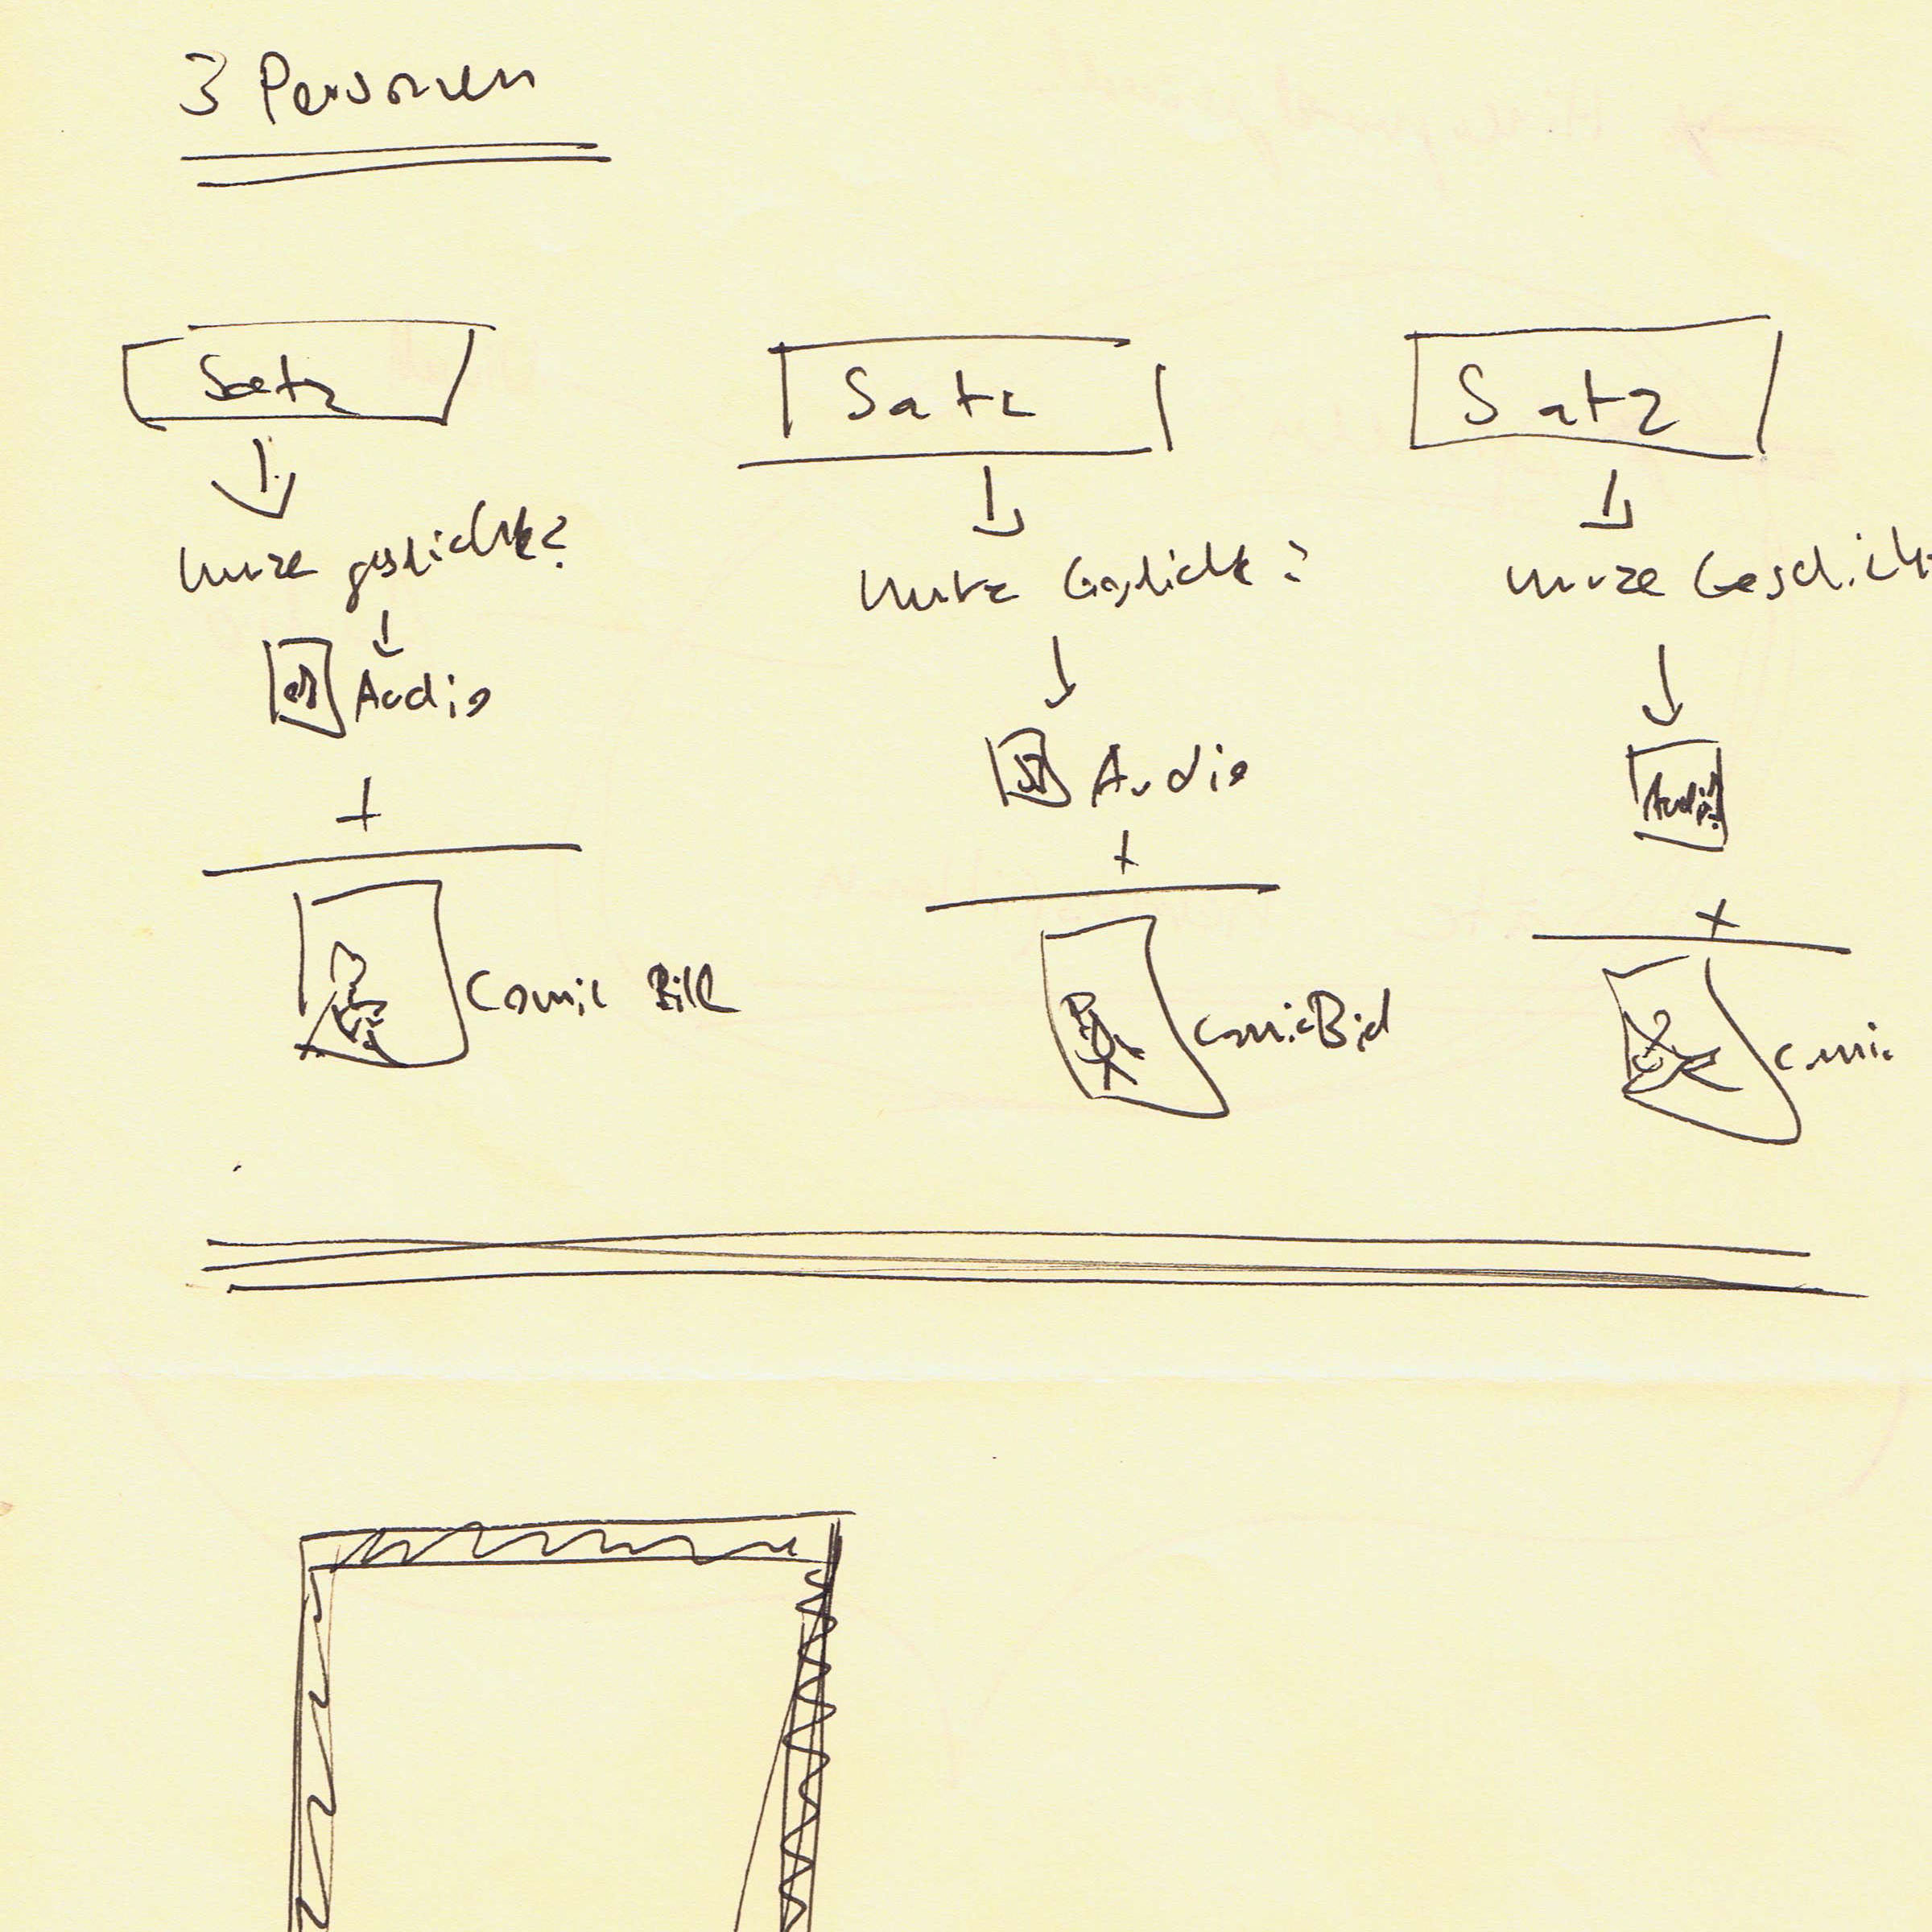 3 Personen
Satz
kurze geschichte?
Audio
+
Comic Bild
Satz
kurze Geschichte?
Audio
+
Comic Bild
Satz
kurze Geschicht
Audio
+
comic